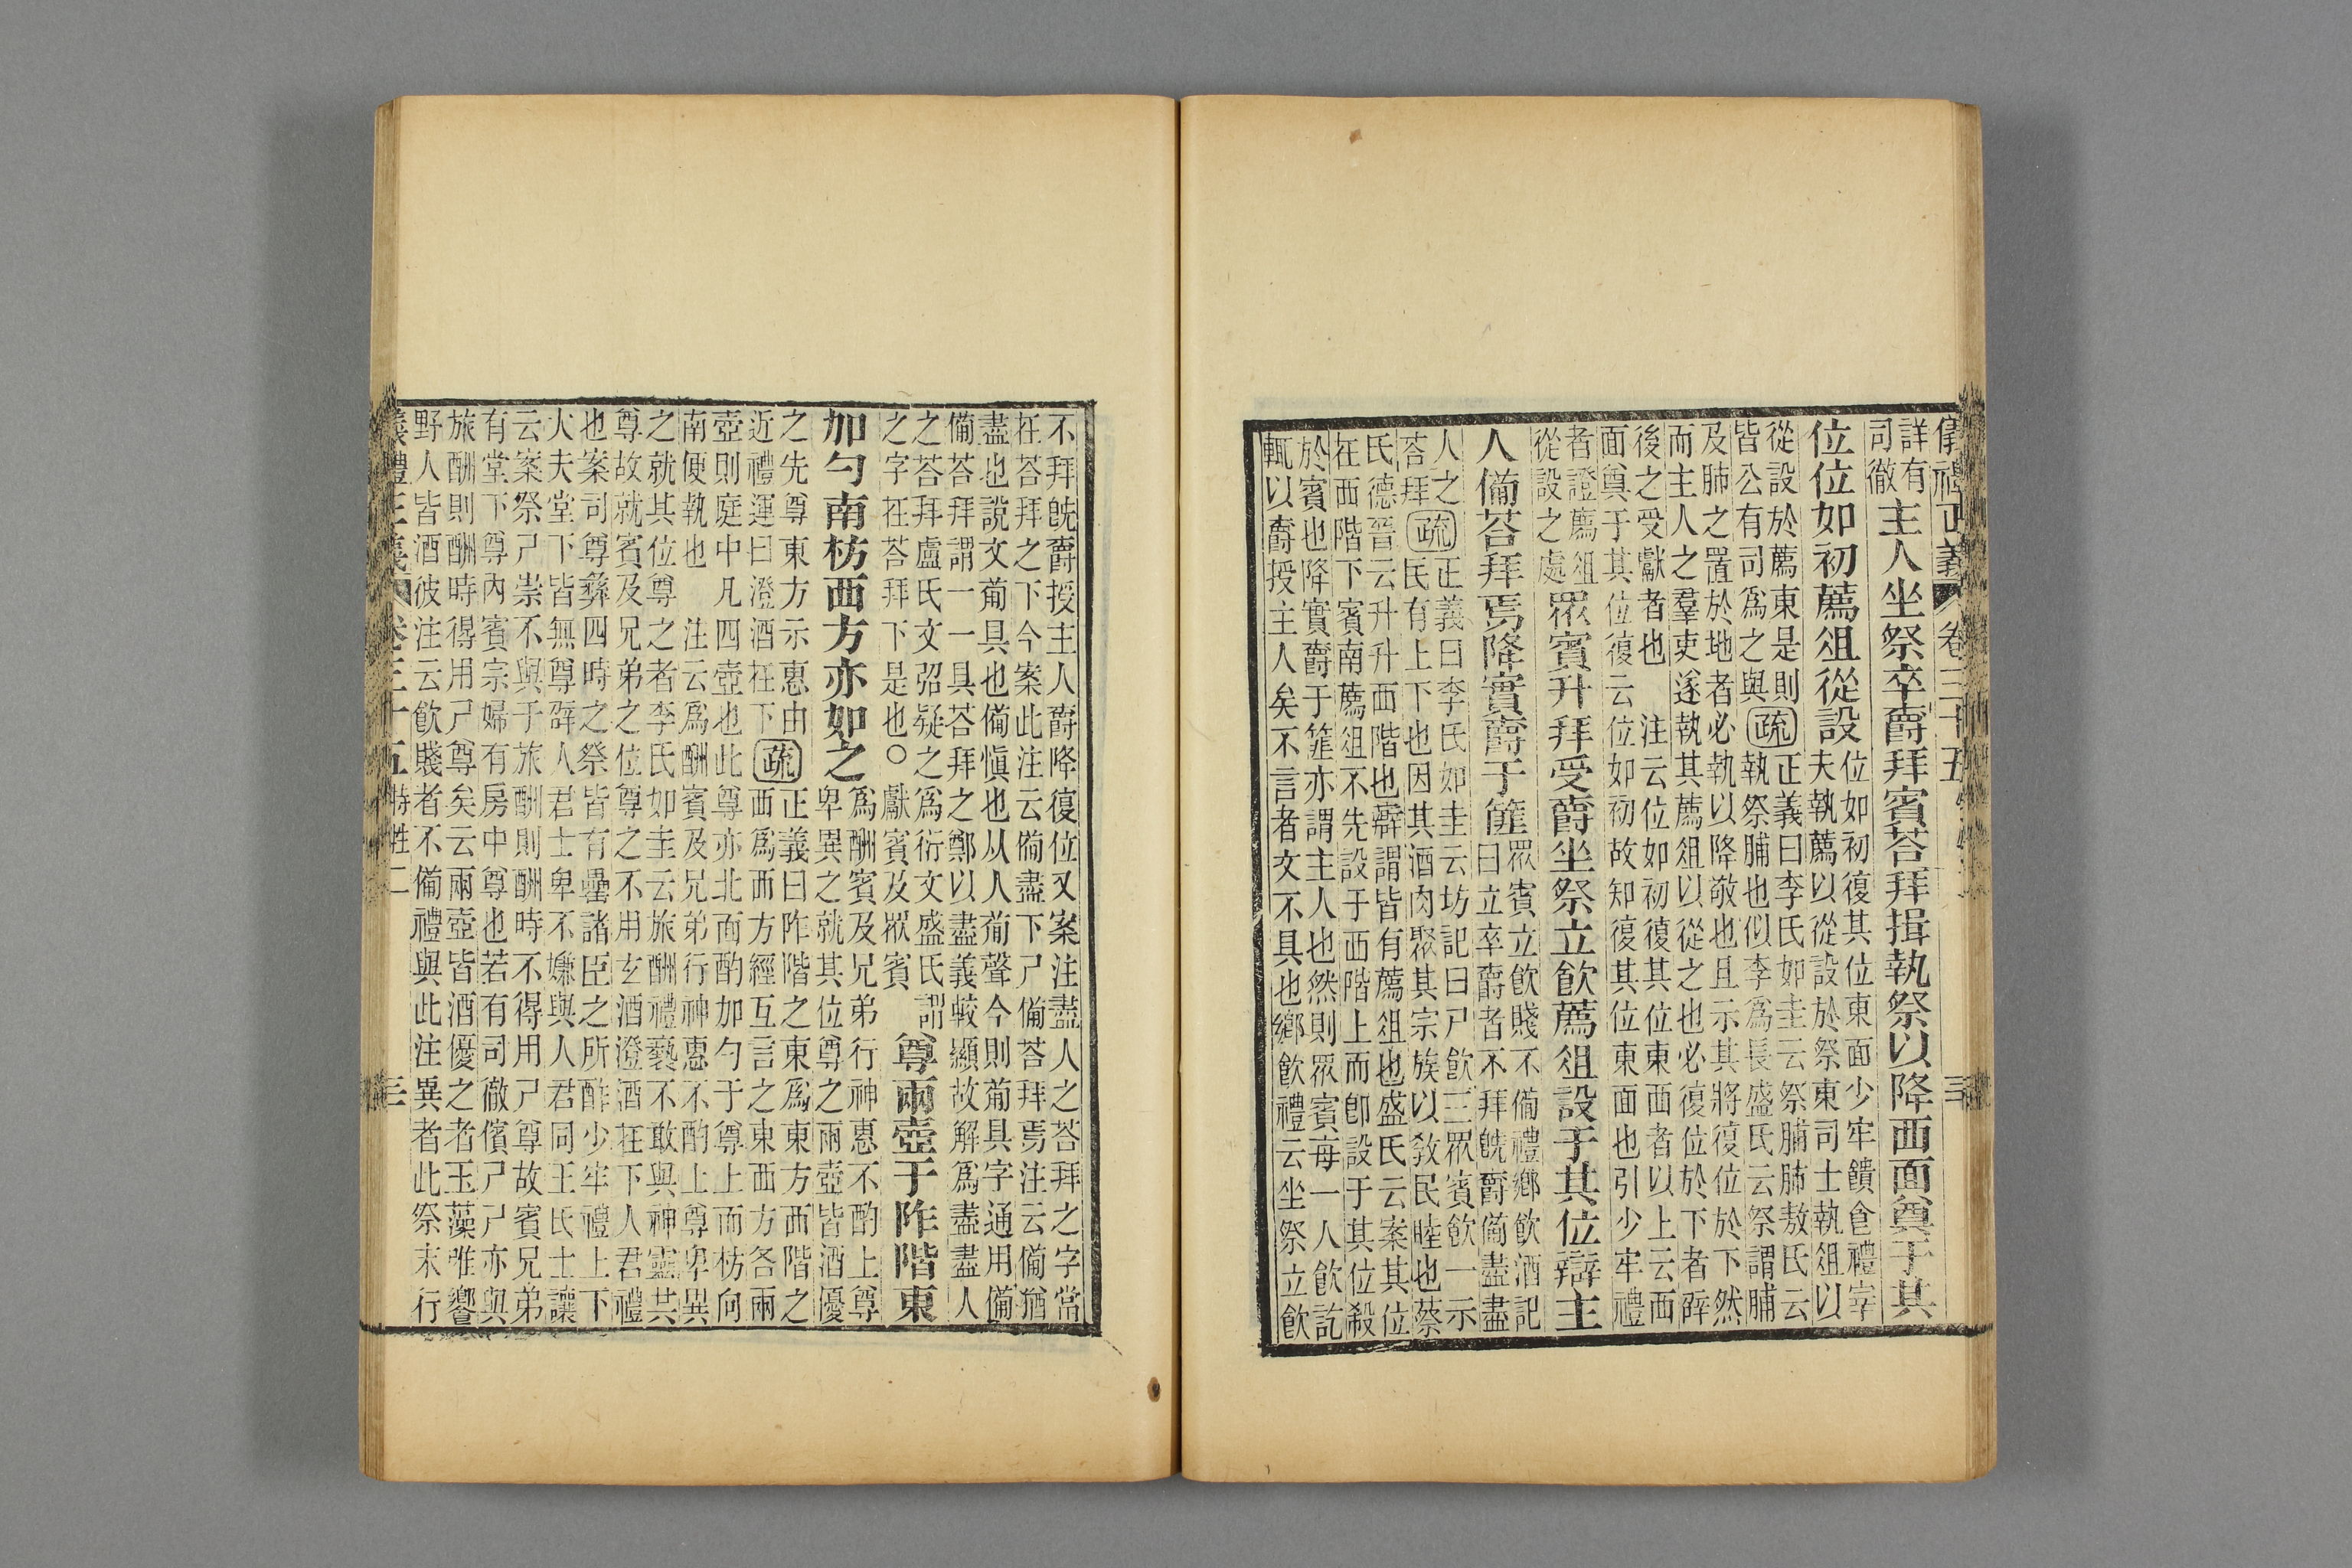 儀禮正義 卷三十五 三
詳有
司徹
主人坐祭卒爵拜賓荅拜揖執祭以降西面奠于其
位位如初薦俎從設
位如初復其位東面少牢饋食禮宰
夫執薦以從設於祭東司士執俎以
從設於薦東是則
皆公有司爲之與
疏
正義曰李氏如圭云祭脯肺敖氏云
執祭脯也似李爲長盛氏云祭謂脯
及肺之置於地者必執以降敬也且示其將復位於下然
而主人之羣吏遂執其薦俎以從之也必復位於下者辟
後之受獻者也 注云位如初復其位東西者以上云西
面奠于其位復云位如初故知復其位東面也引少牢禮
者證薦俎
從設之處
眾賓升拜受爵坐祭立飮薦俎設于其位辯主
人備荅拜焉降實爵于篚
眾賓立飮賤不備禮鄉飮酒記
曰立卒爵者不拜旣爵備盡盡
人之
荅拜
疏
正義曰李氏如圭云坊記曰尸飮三眾賓飮一示
民有上下也因其酒肉聚其宗族以敎民睦也蔡
氏德晉云升升西階也辯謂皆有薦俎也盛氏云案其位
在西階下賓南薦俎不先設于西階上而卽設于其位殺
於賓也降實爵于篚亦謂主人也然則眾賓每一人飮訖
輒以爵授主人矣不言者文不具也鄉飮禮云坐祭立飮
不拜旣爵授主人爵降復位又案注盡人之荅拜之字當
在荅拜之下今案此注云備盡下尸備荅拜焉注云備猶
盡也說文葡具也備愼也从人葡聲今則葡具字通用備
備荅拜謂一一具荅拜之鄭以盡義較顯故解爲盡盡人
之荅拜盧氏文弨疑之爲衍文盛氏謂
之字在荅拜下是也○獻賓及眾賓
尊兩壺于阼階東
加勺南枋西方亦如之
爲酬賓及兄弟行神惠不酌上尊
卑異之就其位尊之兩壺皆酒優
之先尊東方示惠由
近禮運曰澄酒在下
疏
正義曰阼階之東爲東方西階之
西爲西方經互言之東西方各兩
壺則庭中凡四壺也此尊亦北面酌加勺于尊上而枋向
南便執也 注云爲酬賓及兄弟行神惠不酌上尊卑異
之就其位尊之者李氏如圭云旅酬禮褻不敢與神靈共
尊故就賓及兄弟之位尊之不用玄酒澄酒在下人君禮
也案司尊彝四時之祭皆有罍諸臣之所酢少牢禮上下
大夫堂下皆無尊辟人君士卑不嫌與人君同王氏士讓
云案祭尸崇不與于旅酬則酬時不得用尸尊故賓兄弟
有堂下尊內賓宗婦有房中尊也若有司徹儐尸尸亦與
旅酬則酬時得用尸尊矣云兩壺皆酒優之者玉藻唯饗
野人皆酒彼注云飮賤者不備禮與此注異者此祭末行
儀禮正義 卷三十五 特牲二 三